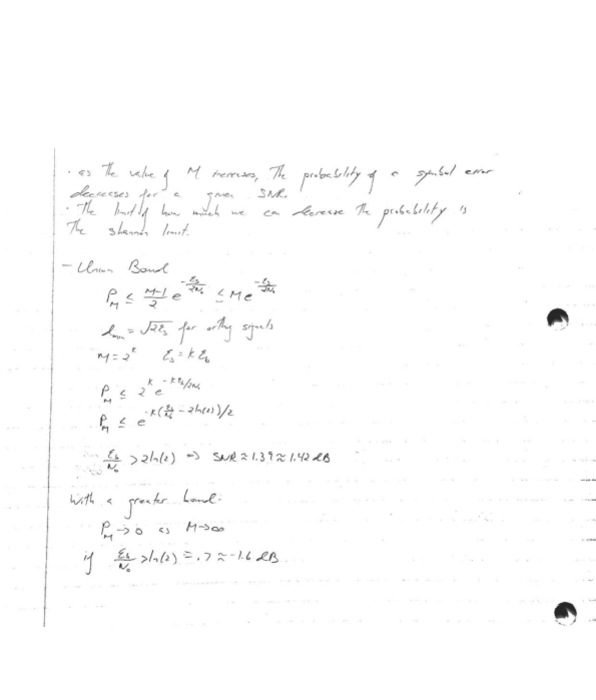 · as The value of M increases, The probability of a symbol error
decreases for a given SNR.
· The limit of how much we can decrease The probability is
The shannon limit.
- Union Bound
P_M ≤ (M-1)/2 e^(-ℰs/2N₀) ≤ M e^(-ℰs/2N₀)
d_min = √2ℰs for orthog signals
M = 2^k ℰs = k ℰb
P_M ≤ 2^k e^(-kℰb/2N₀)
P_M ≤ e^(-k(ℰb/N₀ - 2ln(2))/2)
ℰb/N₀ > 2ln(2) => SNR ≈ 1.39 ≈ 1.42 dB
With a greater bound.
P_M → 0 as M → ∞
if ℰb/N₀ > ln(2) = .7 ≈ -1.6 dB